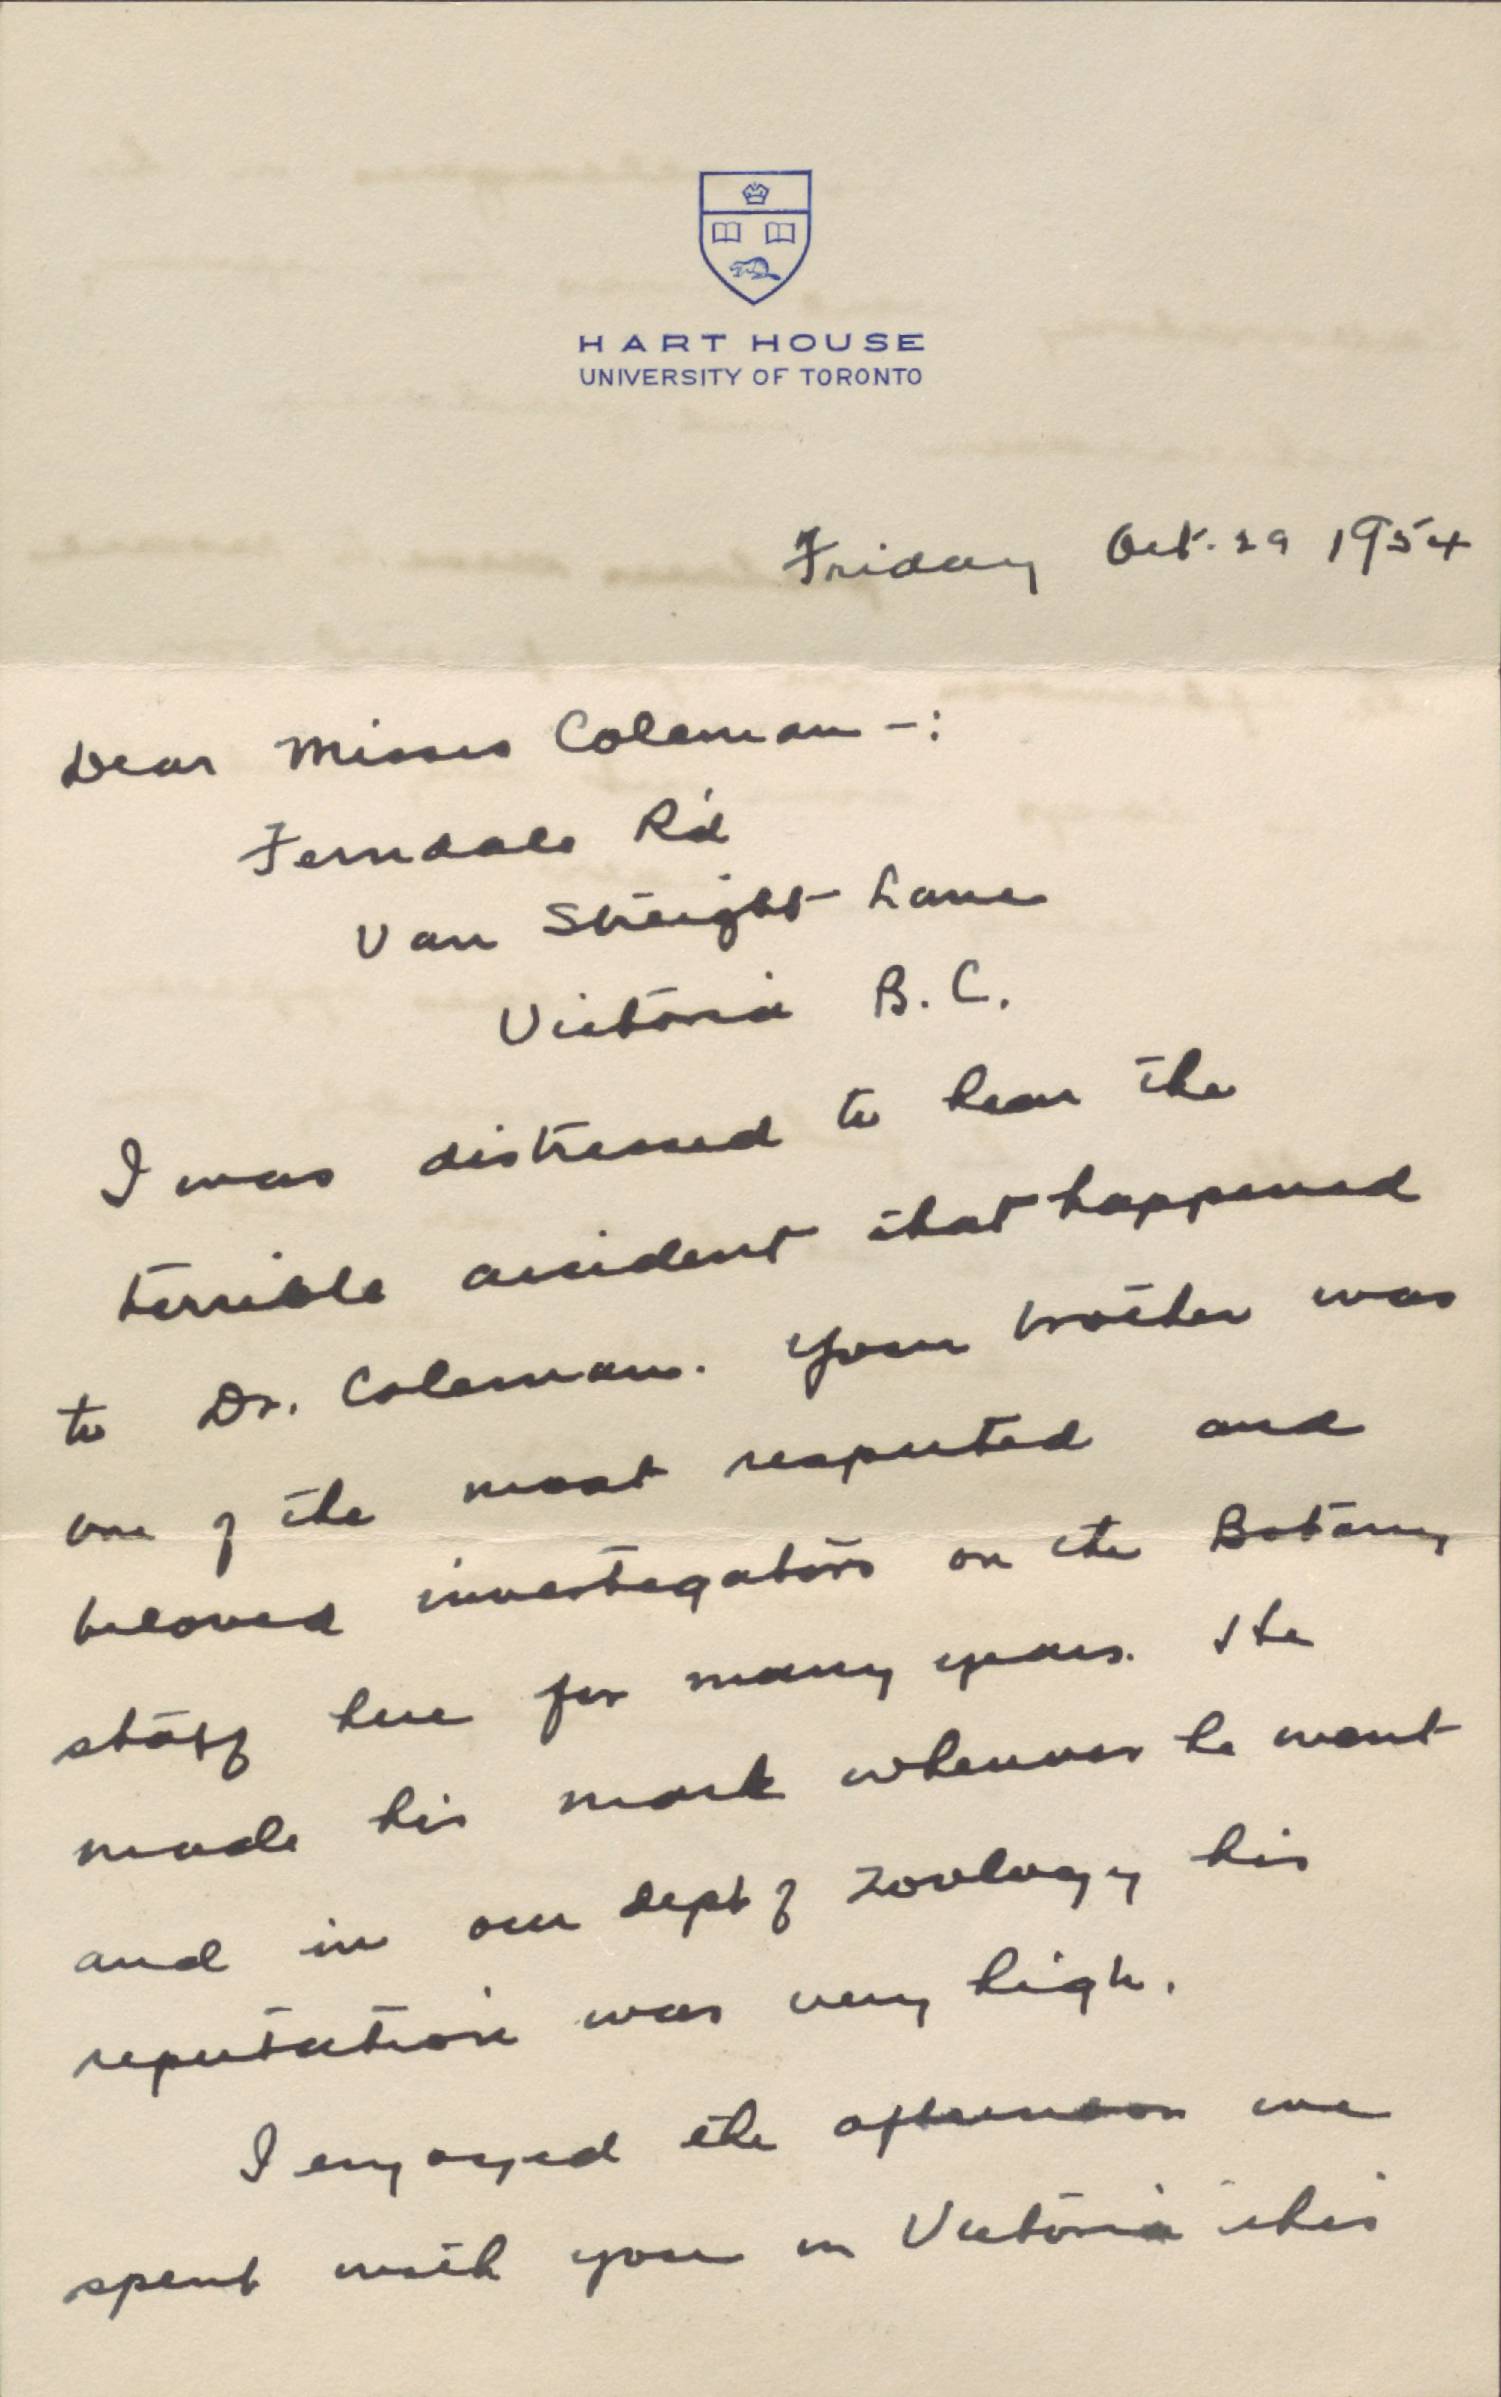 HART HOUSE
UNIVERSITY OF TORONTO
Friday Oct. 29 1954
Dear Misses Coleman -:
Ferndale R'd
Van Streight Lane
Victoria B.C.
I was distressed to hear the
terrible accident that happened
to Dr. Coleman. Your brother was
one of the most respected and
beloved investigators on the Botany
staff here for many years. He
made his mark whenever he went
and in our dept of Zoology his
reputation was very high.
I enjoyed the afternoon we
spent with you in Victoria this